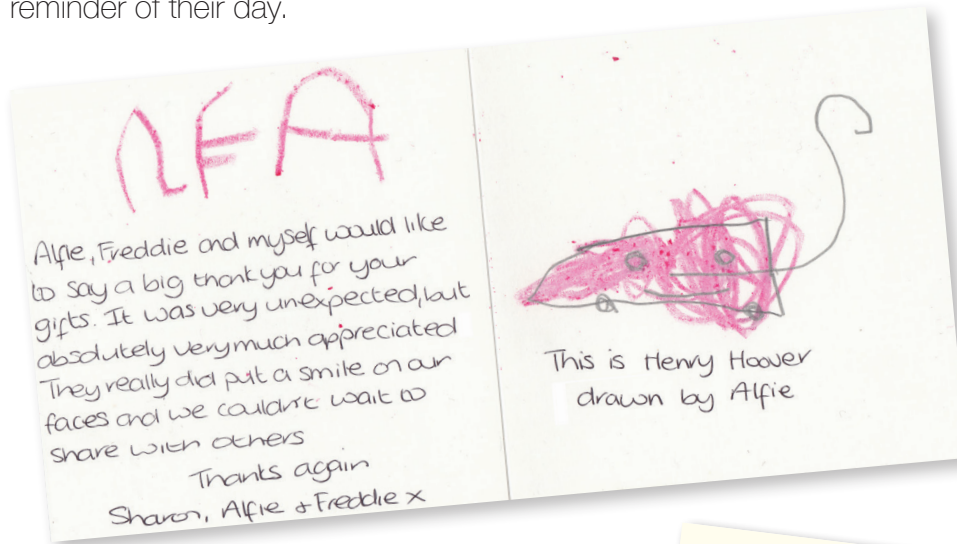 reminder of their day.
NFA
Alfie, Freddie and myself would like
to say a big thank you for your
gifts. It was very unexpected, but
absolutely very much appreciated
They really did put a smile on our
faces and we couldn't wait to
share with others
Thanks again
Sharon, Alfie & Freddie x
This is Henry Hoover
drawn by Alfie